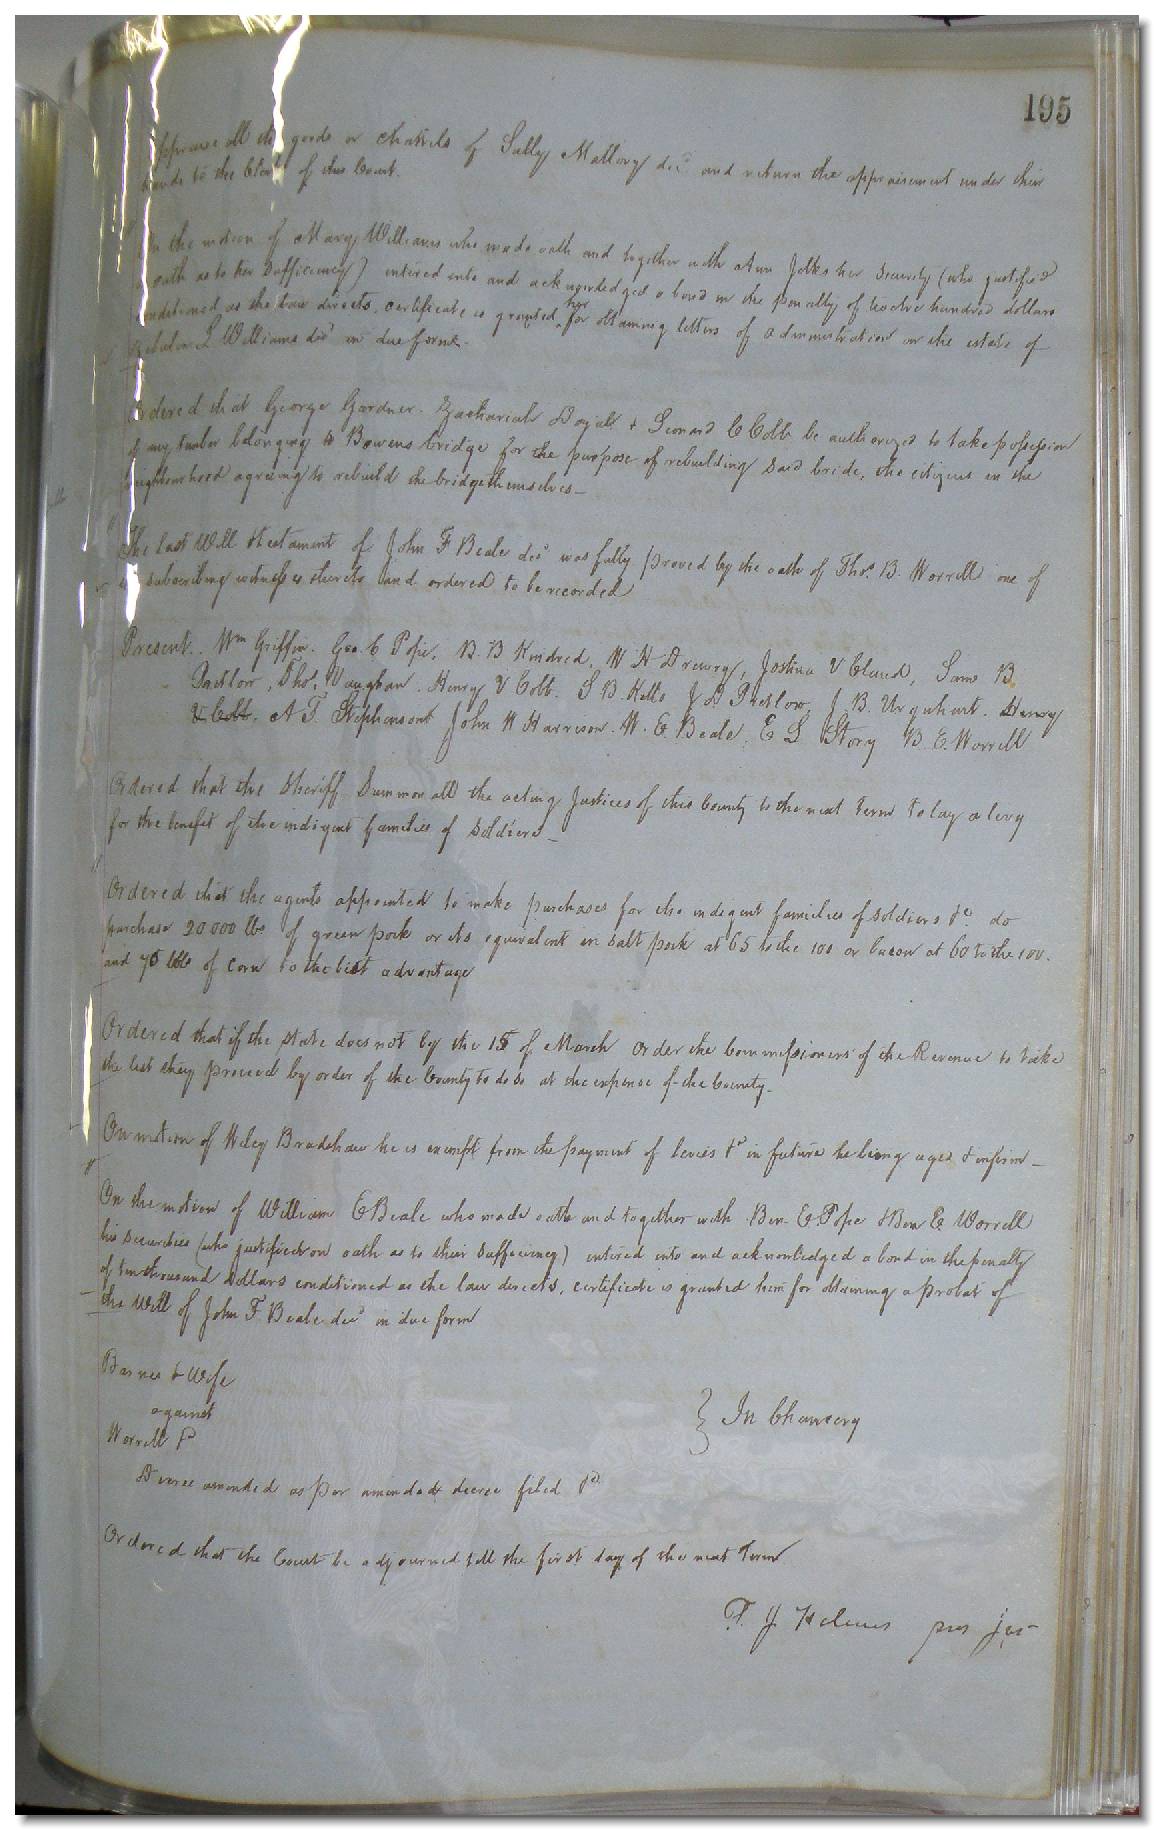 195
appraise all the goods or chattels of Sally Mallory decd and return the appraisement under their
hands to the Clerk of this Court.
On the motion of Mary Williams who made oath and together with Ann Jelks her Security (who justified
on oath as to her Sufficiency) entered into and acknowledged a bond in the penalty of twelve hundred dollars
conditioned as the law directs, certificate is granted her for obtaining letters of administration on the estate of
L Williams decd in due form.
Ordered that George Gardner. Zachariah Doyal + Leonard C Cobb be authorized to take possession
of any timber belonging to Bowens bridge for the purpose of rebuilding said bride, the citizens in the
neighbourhood agreeing to rebuild the bridge themselves_
The last Will & testament of John F Beale decd was fully proved by the oath of Thos. B. Worrell one of
the subscribing witnesses thereto and ordered to be recorded
Present. Wm Griffin. Geo. C Pope. B. B Kindred. W H Drewry, Joshua V Claud, Saml B.
Pretlow, Thos. Vaughan. Henry V Cobb. S B Kello J D Pretlow J. B. Urquhart. Henry
V Cobb. A T. Stephenson John W Harrison. W. E. Beale. E S Story B. E. Worrell
Ordered that the Sheriff Summon all the acting Justices of this County to the next term to lay a levy
for the benefit of the indigent families of soldiers_
Ordered that the agents appointed to make purchases for the indegent families of soldiers &c do
purchase 20000 lbs of green pork or its equivalent in salt pork at 65 to the 100 or bacon at 60 to the 100.
and 75 bbls of corn to the best advantage
Ordered that if the state does not by the 15 of March order the Commissioners of the Revenue to take
the list they proceed by order of the County to do so at the expense of the County.
On motion of Wiley Bradshaw he is exempt from the payment of levies &c in future he being aged & infirm_
On the motion of William E Beale who made oath and together with Ben. E Pope & Ben E Worrell
his securities (who justified on oath as to their sufficiency) entered into and acknowledged a bond in the penalty
of ten thousand Dollars conditioned as the law directs, certificate is granted him for obtaining a probat of
the Will of John F Beale decd in due form
Barnes & Wife
against
Worrell &c
} In Chancery
Decree amended as per amended decree filed &c
Ordered that the Court be adjourned till the first day of the next Term
pres jus